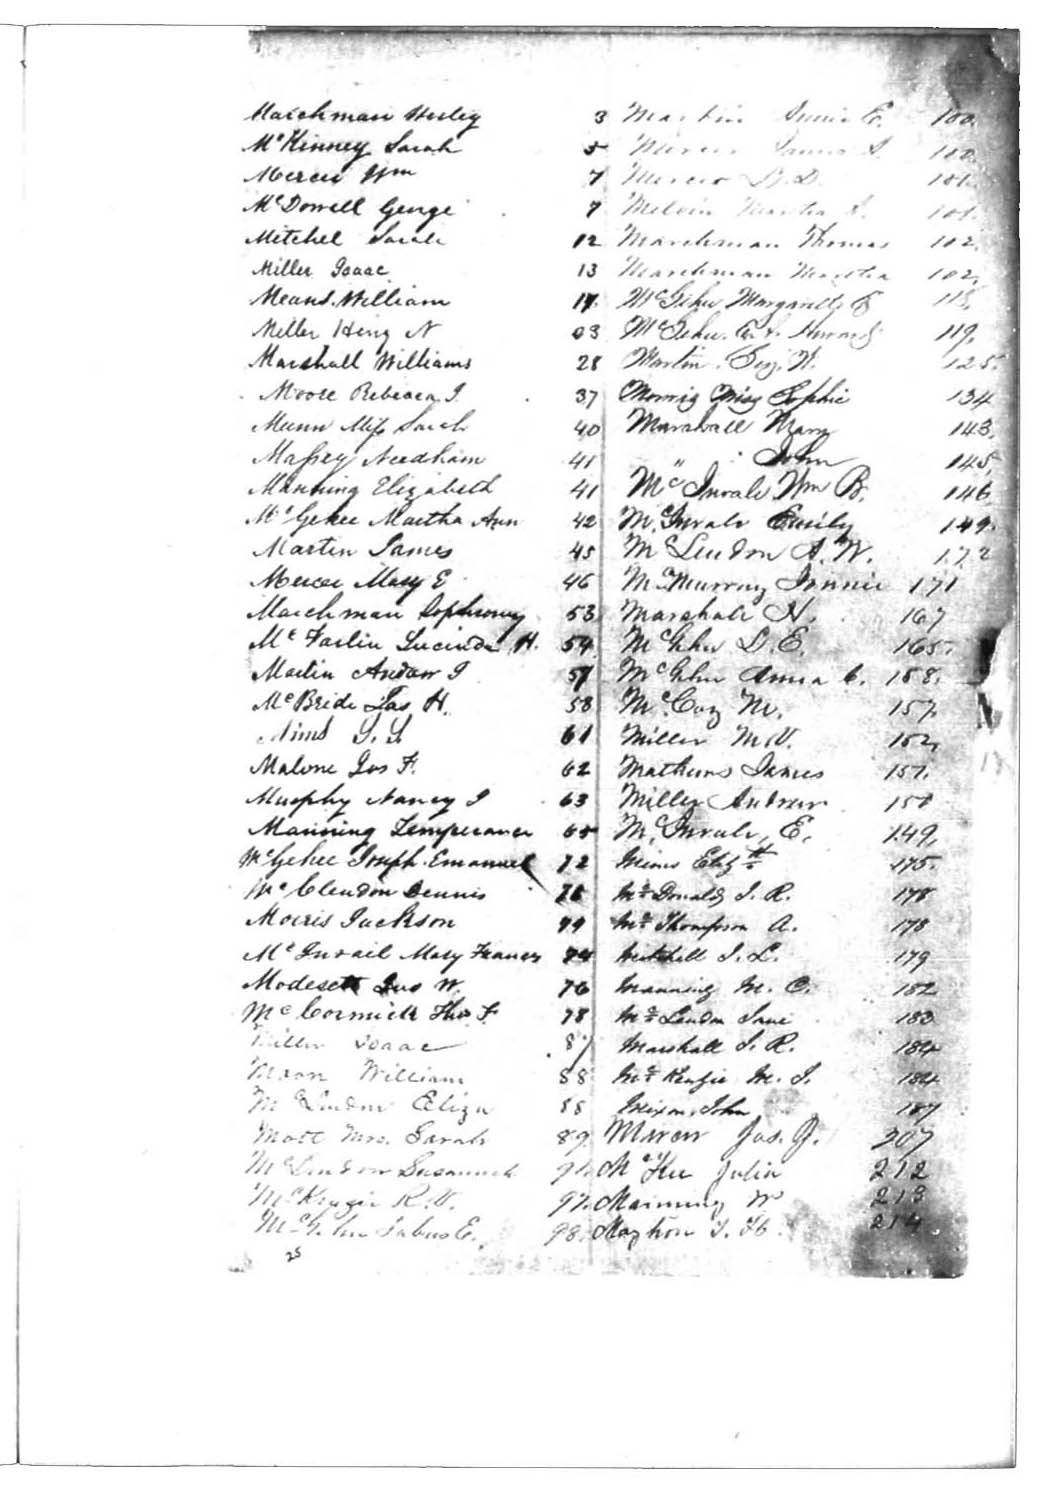 Marchman Wesley 3
McKinney Sarah 5
Mercer Wm 7
McDowell George 7
Mitchel Sarah 12
Miller Isaac 13
Means William 17
Miller Henry N 23
Marshall Williams 28
Moore Rebecca J. 37
Munn Miss Sarah 40
Massey Needham 41
Manning Elizabeth 41
McGehee Martha Ann 42
Marten James 45
Mercer Mary E 46
Marchman Sophrony 53
McFarlin Lucinda H. 54
Martin Andrew J 57
McBride Jas H. 58
Mims 61
Malone Jos F. 62
Murphy Nancy J 63
Manning Temperance 65
McGehee Joseph Emanuel 72
McClendon Dennis
Morris Jackson
McInvail Mary Frances 74
Modesett Jno W. 76
McCormick Thos F 78
Miller Isaac 87
Moon William 88
McLendon Eliza 88
Mott Mrs. Sarah 89
McLendon Susannah
McKenzie R. V. 97
McGehee 98
25
Martin E. 100
Mercer James S. 100
Mercer 101
Melvin Martha 101
Marchman Thomas 102
Marchman Martha 102
McGehee Margaret E 118
McGehee 119
Martin 125
Morris Miss Sophie 134
Marshall Mary 143
" John 145
McInvale Wm B. 146
McInvale Emily 149
McLendon A. W. 172
McMurray Fannie 171
Marshall H. 167
McGehee D. E. 165
McGehee Anna C. 158
McCoy M. 157
Miller M.V. 152
Mathews James 151
Miller Andrew 150
McInvale, E. 149
Mims Elizth 175
McDonald J. R. 178
McThompson A. 178
Mitchell J. L. 179
Manning M. C. 182
McLendon Jane 183
Marshall J. R. 184
McKenzie M. J. 184
Mixon, John 187
Mercer Jas. J. 207
McKee Julia 212
Manning W 213
214